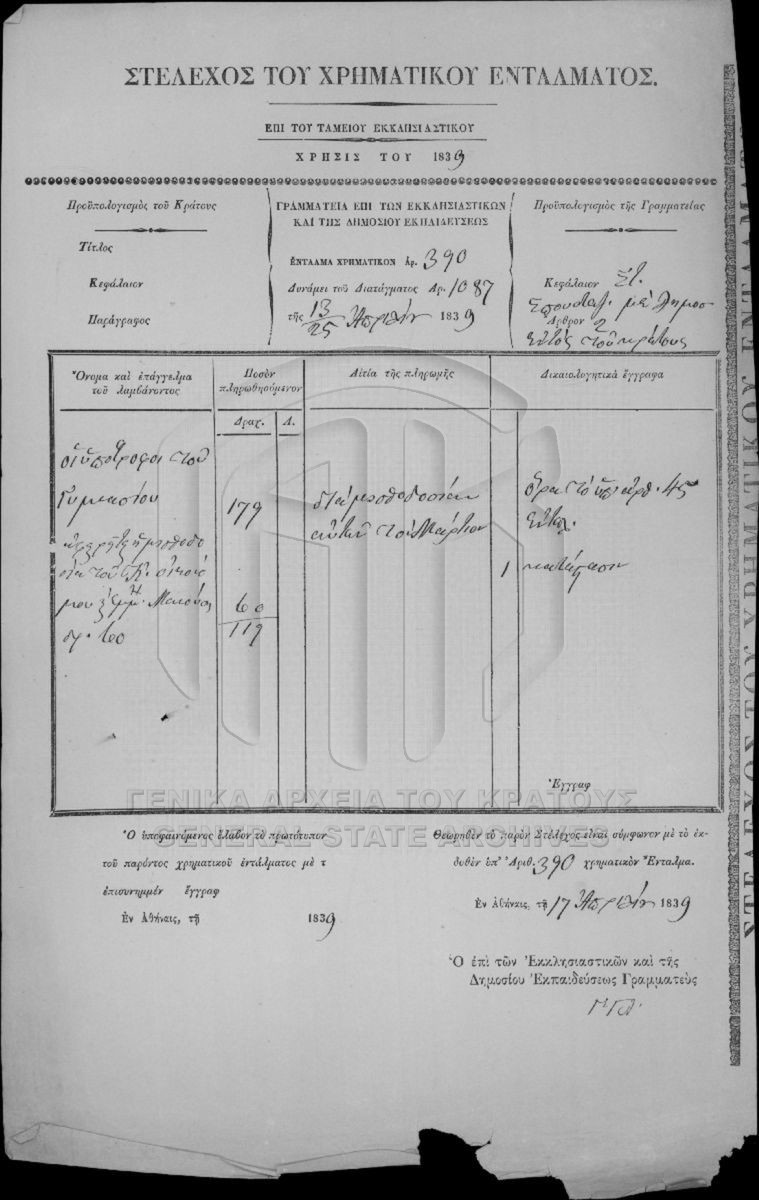 ΣΤΕΛΕΧΟΣ ΤΟΥ ΧΡΗΜΑΤΙΚΟΥ ΕΝΤΑΛΜΑΤΟΣ.
ΕΠΙ ΤΟΥ ΤΑΜΕΙΟΥ ΕΚΚΛΗΣΙΑΣΤΙΚΟΥ
ΧΡΗΣΙΣ ΤΟΥ 1839
Προϋπολογισμὸς τοῦ Κράτους
Τίτλος
Κεφάλαιον
Παράγραφος
ΓΡΑΜΜΑΤΕΙΑ ΕΠΙ ΤΩΝ ΕΚΚΛΗΣΙΑΣΤΙΚΩΝ
ΚΑΙ ΤΗΣ ΔΗΜΟΣΙΟΥ ΕΚΠΑΙΔΕΥΣΕΩΣ
ΕΝΤΑΛΜΑ ΧΡΗΜΑΤΙΚΟΝ Ἀρ. 390
Δυνάμει τοῦ Διατάγματος Ἀρ. 1087
τῆς 13/25 Ἀπριλίου 1839
Προϋπολογισμὸς τῆς Γραμματείας
Κεφάλαιον ΣΤ.
Ἄρθρον 2
ἐντὸς τοῦ κράτους
Ὄνομα καὶ ἐπάγγελμα
τοῦ λαμβάνοντος
Ποσὸν
πληρωθησόμενον
Δραχ. Λ.
Αἰτία τῆς πληρωμῆς
Δικαιολογητικὰ ἔγγραφα
οἱ ὑπότροφοι τοῦ
Γυμνασίου
179
διὰ μισθοδοσίαν
αὐτῶν τοῦ Μάρτιον
ὅρα τὸ ὑπ' ἀρθ. 45
ἐνταλ.
1 κατάστασιν
60
119
Ἔγγραφ
Ὁ ὑποφαινόμενος ἔλαβον τὸ πρωτότυπον
τοῦ παρόντος χρηματικοῦ ἐντάλματος μὲ τ
ἐπισυνημμέν ἔγγραφ
Ἐν Ἀθήναις, τῇ 1839
Θεωρηθὲν τὸ παρὸν Στέλεχος εἶναι σύμφωνον μὲ τὸ ἐκ-
δοθὲν ὑπ' Ἀριθ. 390 χρηματικὸν Ἔνταλμα.
Ἐν Ἀθήναις, τῇ 17 Ἀπριλίου 1839
Ὁ ἐπὶ τῶν Ἐκκλησιαστικῶν καὶ τῆς
Δημοσίου Ἐκπαιδεύσεως Γραμματεὺς
ΓΕΝΙΚΑ ΑΡΧΕΙΑ ΤΟΥ ΚΡΑΤΟΥΣ
GENERAL STATE ARCHIVES
ΣΤΕΛΕΧΟΣ ΤΟΥ ΧΡΗΜΑΤΙΚΟΥ ΕΝΤΑΛΜΑΤ